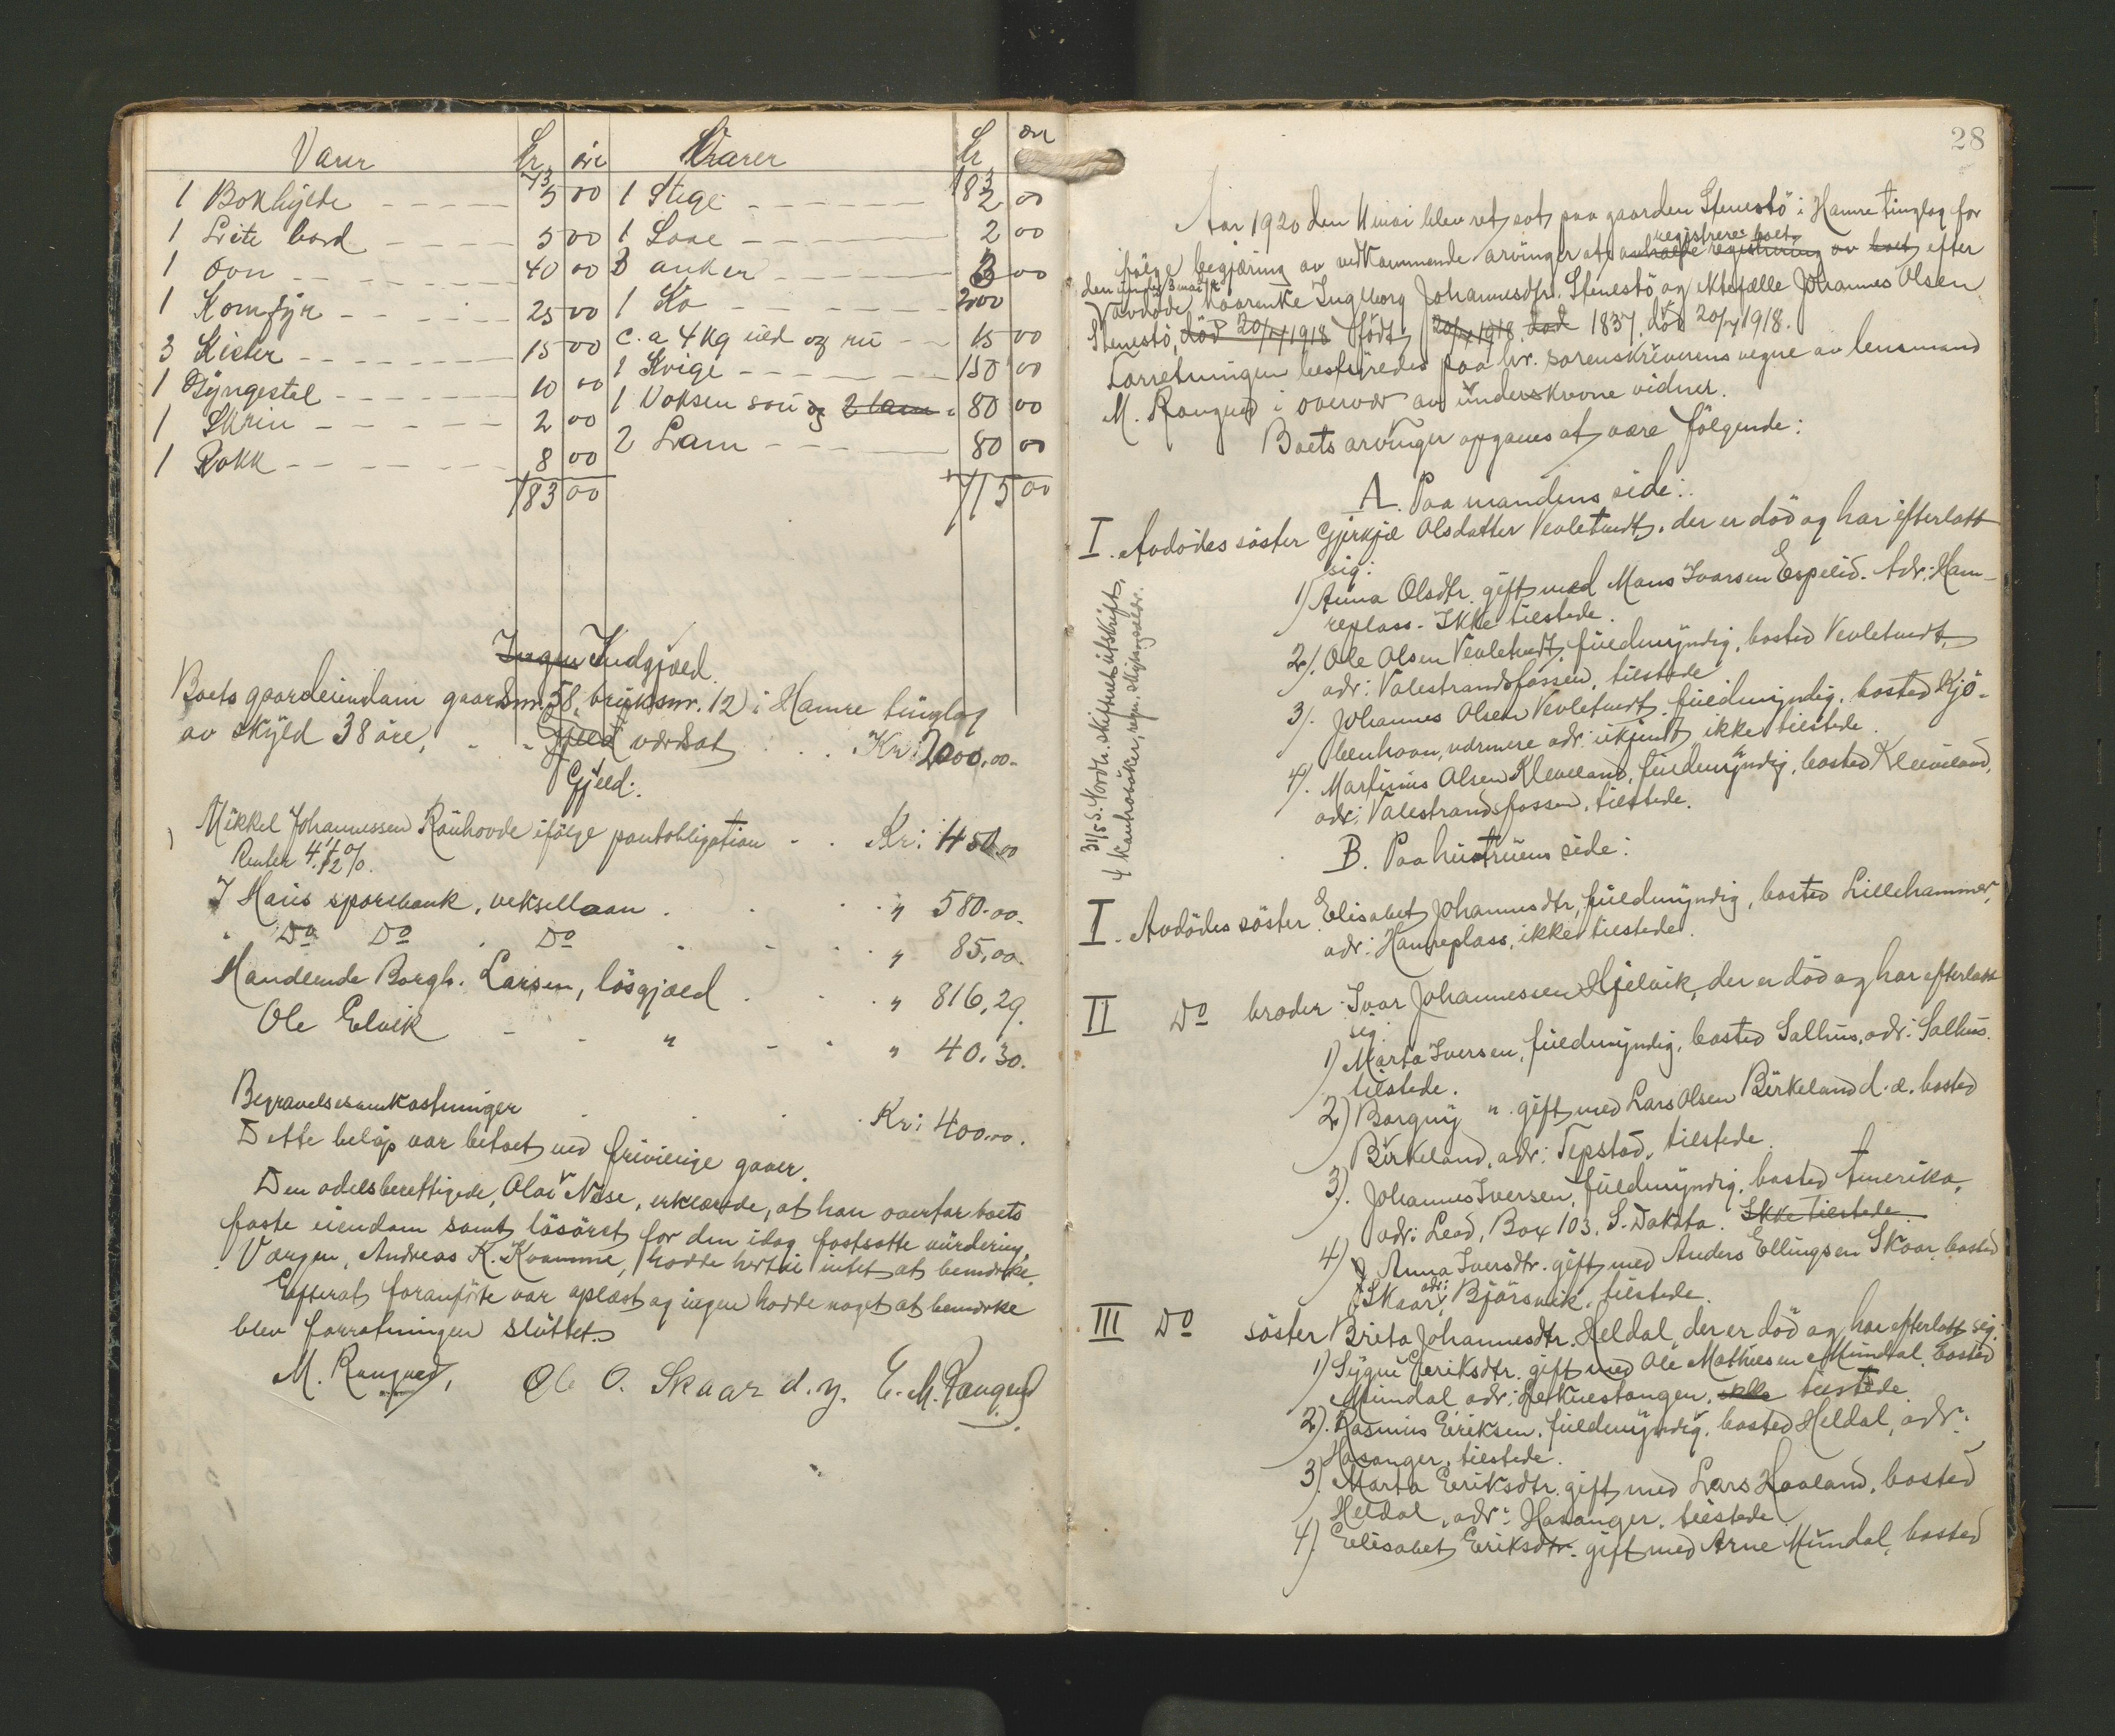 Varer Kr. öre Varer Kr öre
73 183
1 Bokhylde - - - - 5 00 1 Stige - - - - - 2 00
1 Lite bord - - - - 5 00 1 Laae - - - - - 2 00
1 Ovn - - - - - 40 00 3 anker - - - - - 3 00
1 Komfyr - - - - 25 00 1 Ko - - - - - 200
3 Kister - - - - - 15 00 c.a 4 kg uld og ru - - 15 00
1 Gyngestol - - - - 10 00 1 Kvige - - - - - 150 00
1 Skrin - - - - - 2 00 1 Voksen sau og 2 lam - 80 00
1 Rokk - - - - - 8 00 2 Lam - - - - 80 00
183 00 715 00
Ingen Indgjæld.
Boets gaardeiendom gaardsnr. 58, bruksnr. 12 i Hamre tinglag
av skyld 38 öre, - - Gjæld værdsat . . . Kr: 2000,00-
Gjæld:
Mikkel Johannessen Rauhovde ifölge pantobligation - . Kr: 450,00
Renter 4 1/2 %.
I Haus sparebank, veksellaan . . . „ 580-00-
" Do Do . Do . - . . „ 85,00-
Handlende Borgh. Larsen, lösgjæld . . . „ 816,29.
Ole Elvik - - „ - - „ 40,30.
Begravelsesomkostninger . . . Kr: 400,00.
Dette belöp var betalt ved frivillige gaver.
Den odelsberettigede, Olai Næse, erklærede, at han overtar boets
faste eiendom samt lösöret for den idag fastsatte vurdering.
Værgen, Andreas K. Kvamme, hadde hertil intet at bemerke.
Efterat foranförte var oplæst og ingen hadde noget at bemerke
blev forretningen sluttet.
M. Rangved, Ole O. Skaar d.y. E. M. Rangved
28
Aar 1920 den 11 mai blev ret sat paa gaarden Stenestö i Hamre tinglag for
registrere boet
fölge begjæring av vedkommende arvinger at avholde registrering av boet efter
den 3 mai
avdöde kaarenke Ingeborg Johannesdtr. Stenestö og ektefælle Johannes Olsen
Stenestö, död 20/4 1918 födt 20/4 1918 död 1837, död 20/4 1918.
Forretningen bestyredes paa hr. sorenskriverens vegne av lensmand
M. Rangved i overvær av underskrevne vidner.
Boets arvinger opgaves at være fölgende:
A. Paa mandens side:
I. Avdödes söster Gjerkje Olsdatter Vevletveidt, der er död og har efterlatt
sig:
1) Anna Olsdtr. gift med Mons Ivarsen Espelid. Adr: Ham-
replass. Ikke tilstede.
2). Ole Olsen Vevletveidt, fuldmyndig, bosted Vevletveidt,
adr: Valestrandsfossen, tilstede
3). Johannes Olsen Vevletveidt, fuldmyndig, bosted Kjö-
benhavn, nærmere adr. ukjendt, ikke tilstede.
4). Martinus Olsen Kleveland, fuldmyndig, bosted Kleiveland,
adr: Valestrandsfossen, tilstede.
31/5 S. Nordh. skifteret utskrift,
4 kaarhovöker, regn. skyldsætn.
B. Paa hustruens side:
I. Avdödes söster Elisabet Johannesdtr, fuldmyndig, bosted Lillehammer,
adr: Hamreplass, ikke tilstede.
II Do broder Ivar Johannessen Hjelvik, der er död og har efterlatt
sig:
1) Marta Iversen, fuldmyndig, bosted Salhus, adr: Salhus.
tilstede.
2) Borgny " gift med Lars Olsen Birkeland d.æ. bosted
Birkeland, adr: Tepstad, tilstede.
3). Johannes Iversen, fuldmyndig, bosted Amerika,
adr: Lead, Box 103, S. Dakota. Ikke tilstede.
4) Anna Iversdtr. gift med Anders Ellingsen Skaar, bosted
Skaar, adr: Bjørsvik, tilstede.
III Do söster Brita Johannesdtr. Heldal, der er död og har efterlatt sig:
1) Sygni Eriksdtr. gift med Ole Mathiesen Mundal, bosted
Mundal, adr: Leknestangen, ikke tilstede.
2). Rasmus Eriksen, fuldmyndig, bosted Heldal, adr.
Hosanger, tilstede.
3) Marta Eriksdtr. gift med Lars Haaland, bosted
Heldal, adr: Hosanger, tilstede
4). Elisabet Eriksdtr. gift med Arne Mundal, bosted